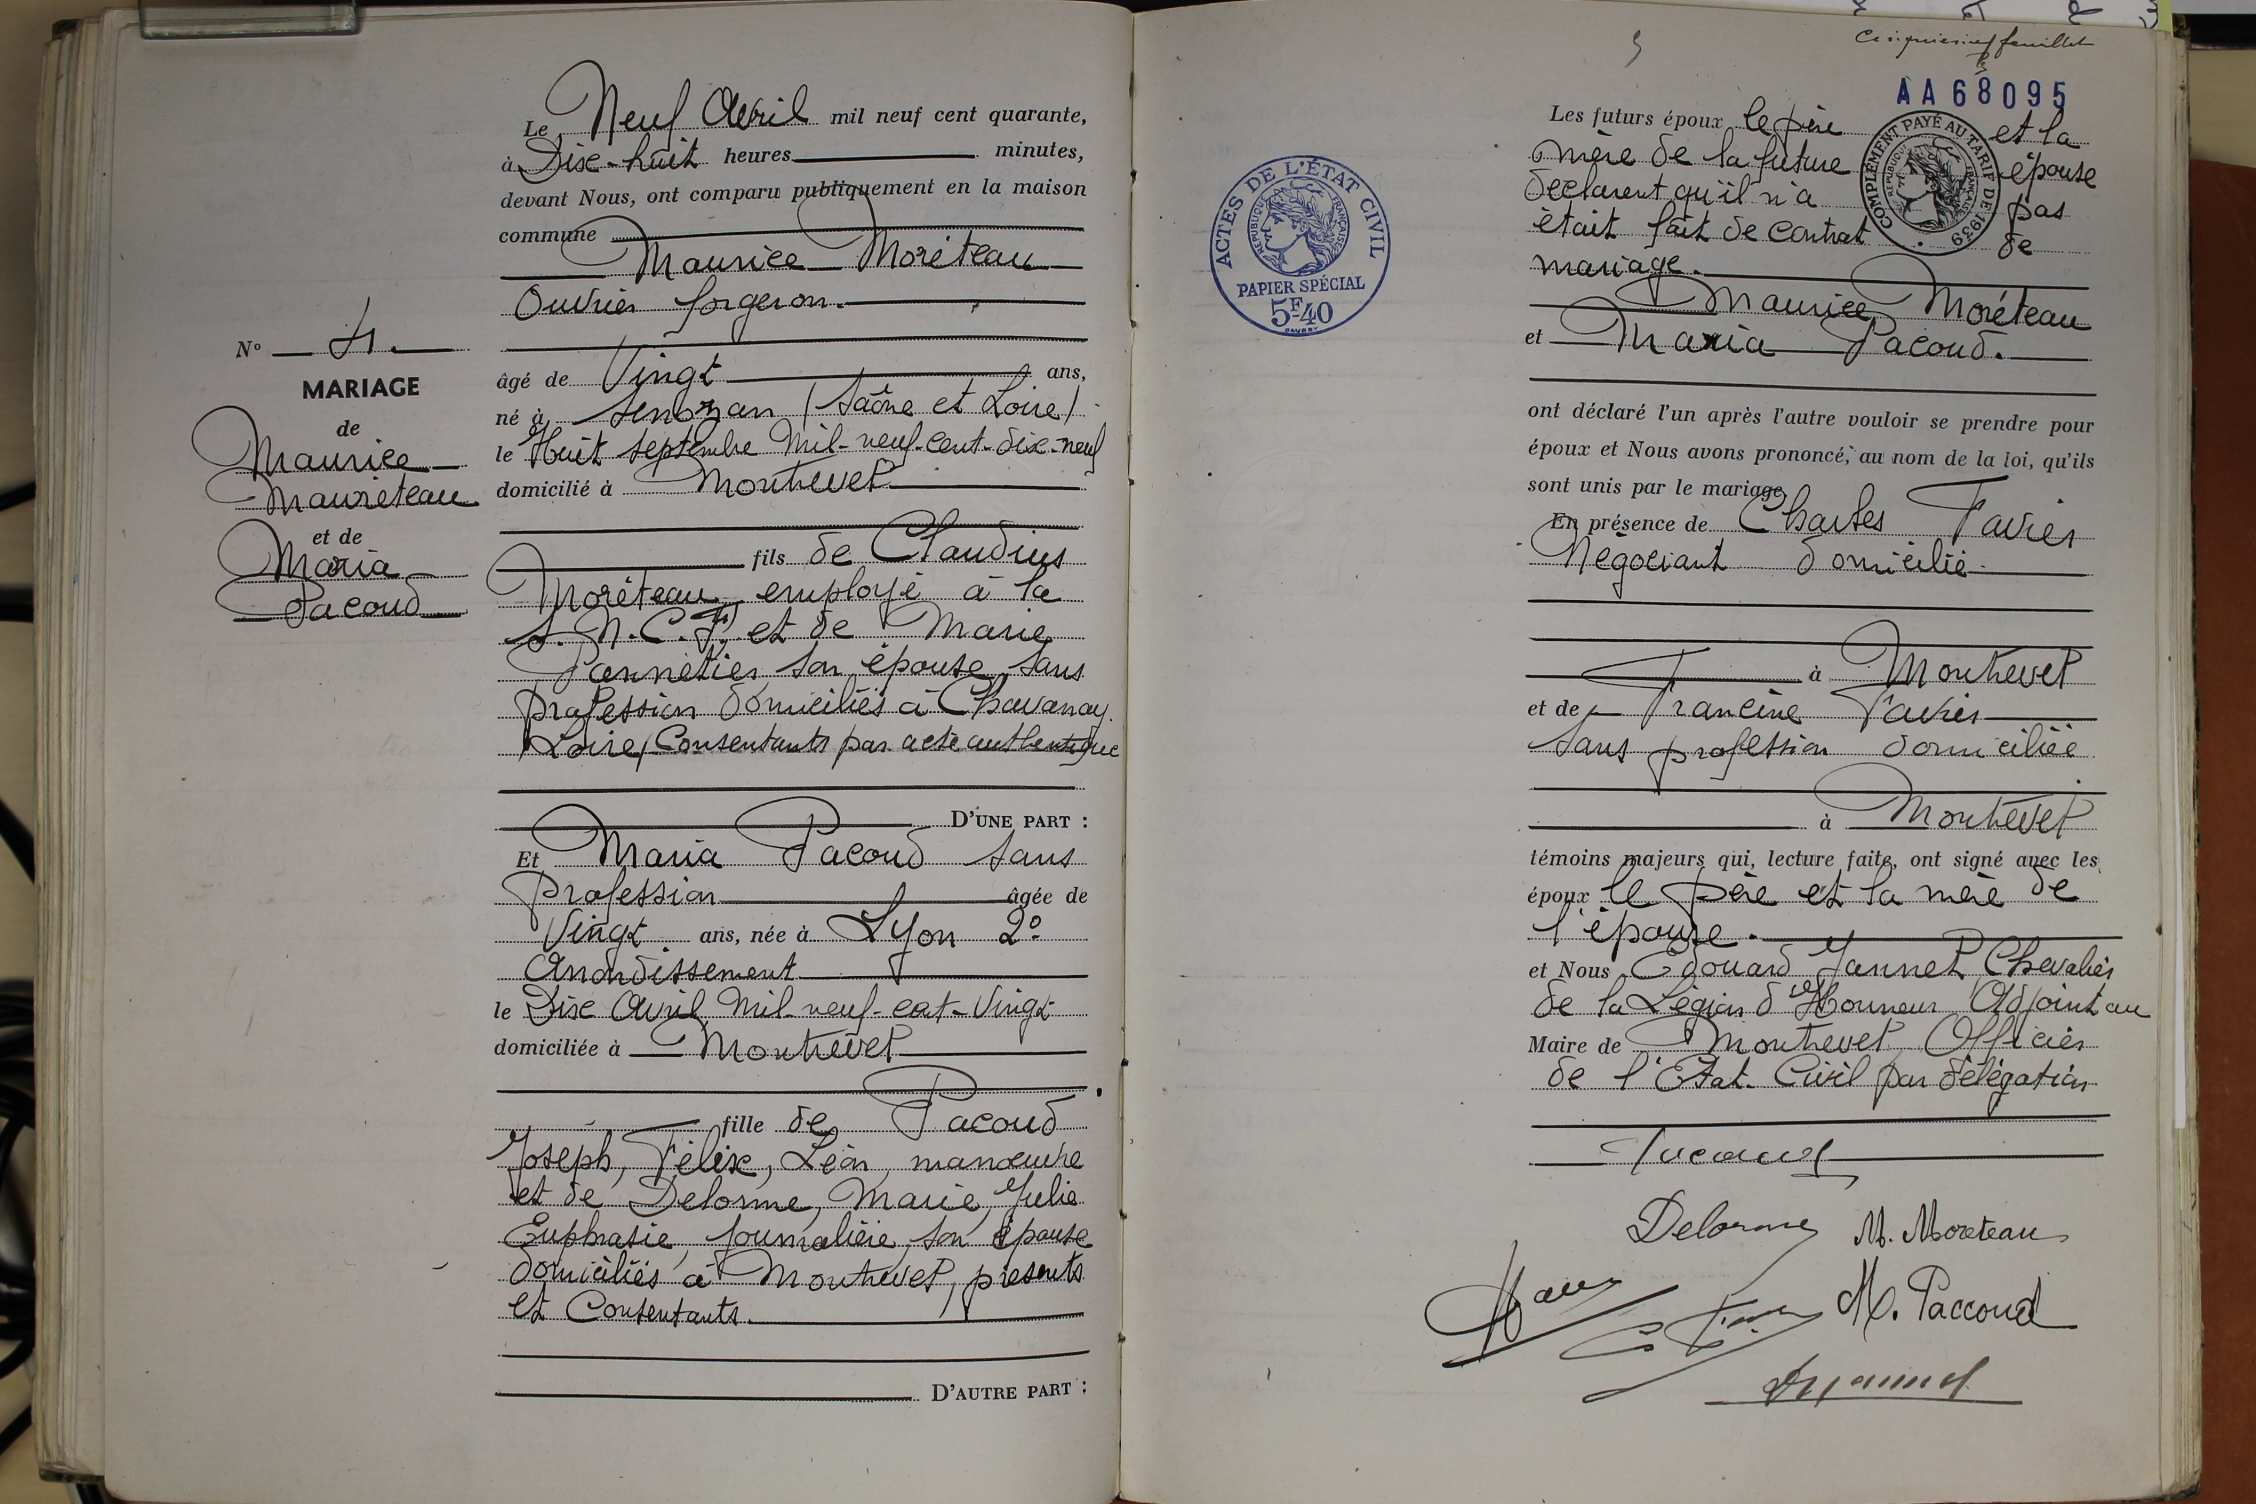 N° 4.
MARIAGE
de
Maurice
Mauréteau
et de
Maria
Pacoud
Le Neuf Avril mil neuf cent quarante,
à Dix-huit heures minutes,
devant Nous, ont comparu publiquement en la maison
commune
Maurice Moréteau
Ouvrier forgeron.
âgé de Vingt ans,
né à Senozan (Saône et Loire)
le Huit septembre Mil-neuf-cent-dix-neuf
domicilié à Montrevel
fils de Claudius
Moréteau, employé à la
S.N.C.F. et de Marie
Pannetier son épouse, sans
profession domiciliés à Chavanay
(Loire) Consentants par acte authentique
D'UNE PART :
Et Maria Pacoud sans
Profession âgée de
Vingt ans, née à Lyon 2°
Arrondissement
le Dix Avril Mil-neuf-cent-Vingt
domiciliée à Montrevel
fille de Pacoud
Joseph, Félix, Léon, manœuvre
et de Delorme, Marie, Julie
Euphrasie, journalière, son épouse
domiciliés à Montrevel, présents
et Consentants.
D'AUTRE PART :
ACTES DE L'ÉTAT CIVIL
RÉPUBLIQUE FRANÇAISE
PAPIER SPÉCIAL
5F40
5
Cinquième feuillet
AA68095
COMPLÉMENT PAYÉ AU TARIF DE 1939
RÉPUBLIQUE FRANÇAISE
Les futurs époux, le père et la
mère de la future épouse
déclarent qu'il n'a pas
était fait de contrat de
mariage.
Maurice Moréteau
et Maria Pacoud.
ont déclaré l'un après l'autre vouloir se prendre pour
époux et Nous avons prononcé, au nom de la loi, qu'ils
sont unis par le mariage.
En présence de Charles Favier
Négociant domicilié
à Montrevel
et de Francine Favier
sans profession domiciliée
à Montrevel
témoins majeurs qui, lecture faite, ont signé avec les
époux le père et la mère de
l'épouse.
et Nous Edouard Jannel Chevalier
de la Légion d'Honneur Adjoint au
Maire de Montrevel Officier
de l'Etat-Civil par délégation
Delorme M. Moreteau
M. Paccoud